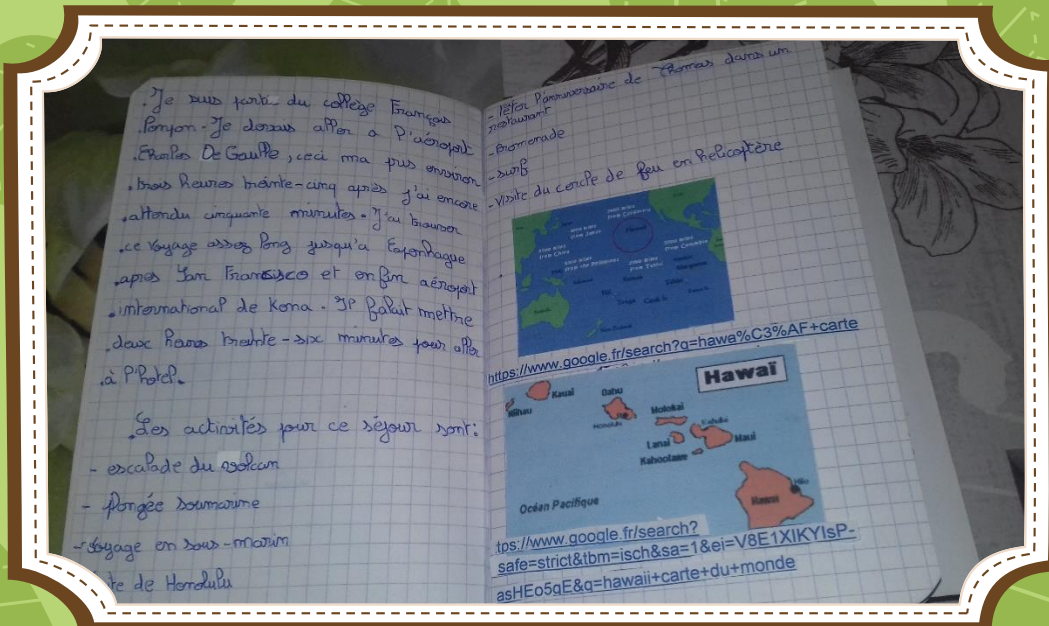 .Je suis parti du collège Français
.Ponpon-Je devais aller a l'aéroport
.Charles De Gaulle, ceci ma pris environ
.trois heures trente-cinq après j'ai encore
.attendu cinquante minutes. J'ai trouver
.ce voyage assez long jusqu'a Coponhague
.apres San Francisco et enfin aéroport
.international de Kona. Il falait mettre
.deux heures trente-six minutes pour aller
.à l'hotel.
.Les activités pour ce séjour sont:
- escalade du volcan
- plongée soumarine
- voyage en sous-marin
te de Honolulu
- fêter l'anniversaire de Thomas dans un
restaurant
- Promenade
- surf
- Visite du cercle de feu en helicoptère
https://www.google.fr/search?q=hawa%C3%AF+carte
Hawaï
Niihau
Kauai
Oahu
Honolulu
Molokai
Lanai
Kahului
Maui
Kahoolawe
Hilo
Hawaii
Océan Pacifique
tps://www.google.fr/search?
safe=strict&tbm=isch&sa=1&ei=V8E1XIKYIsP-
asHEo5gE&q=hawaii+carte+du+monde